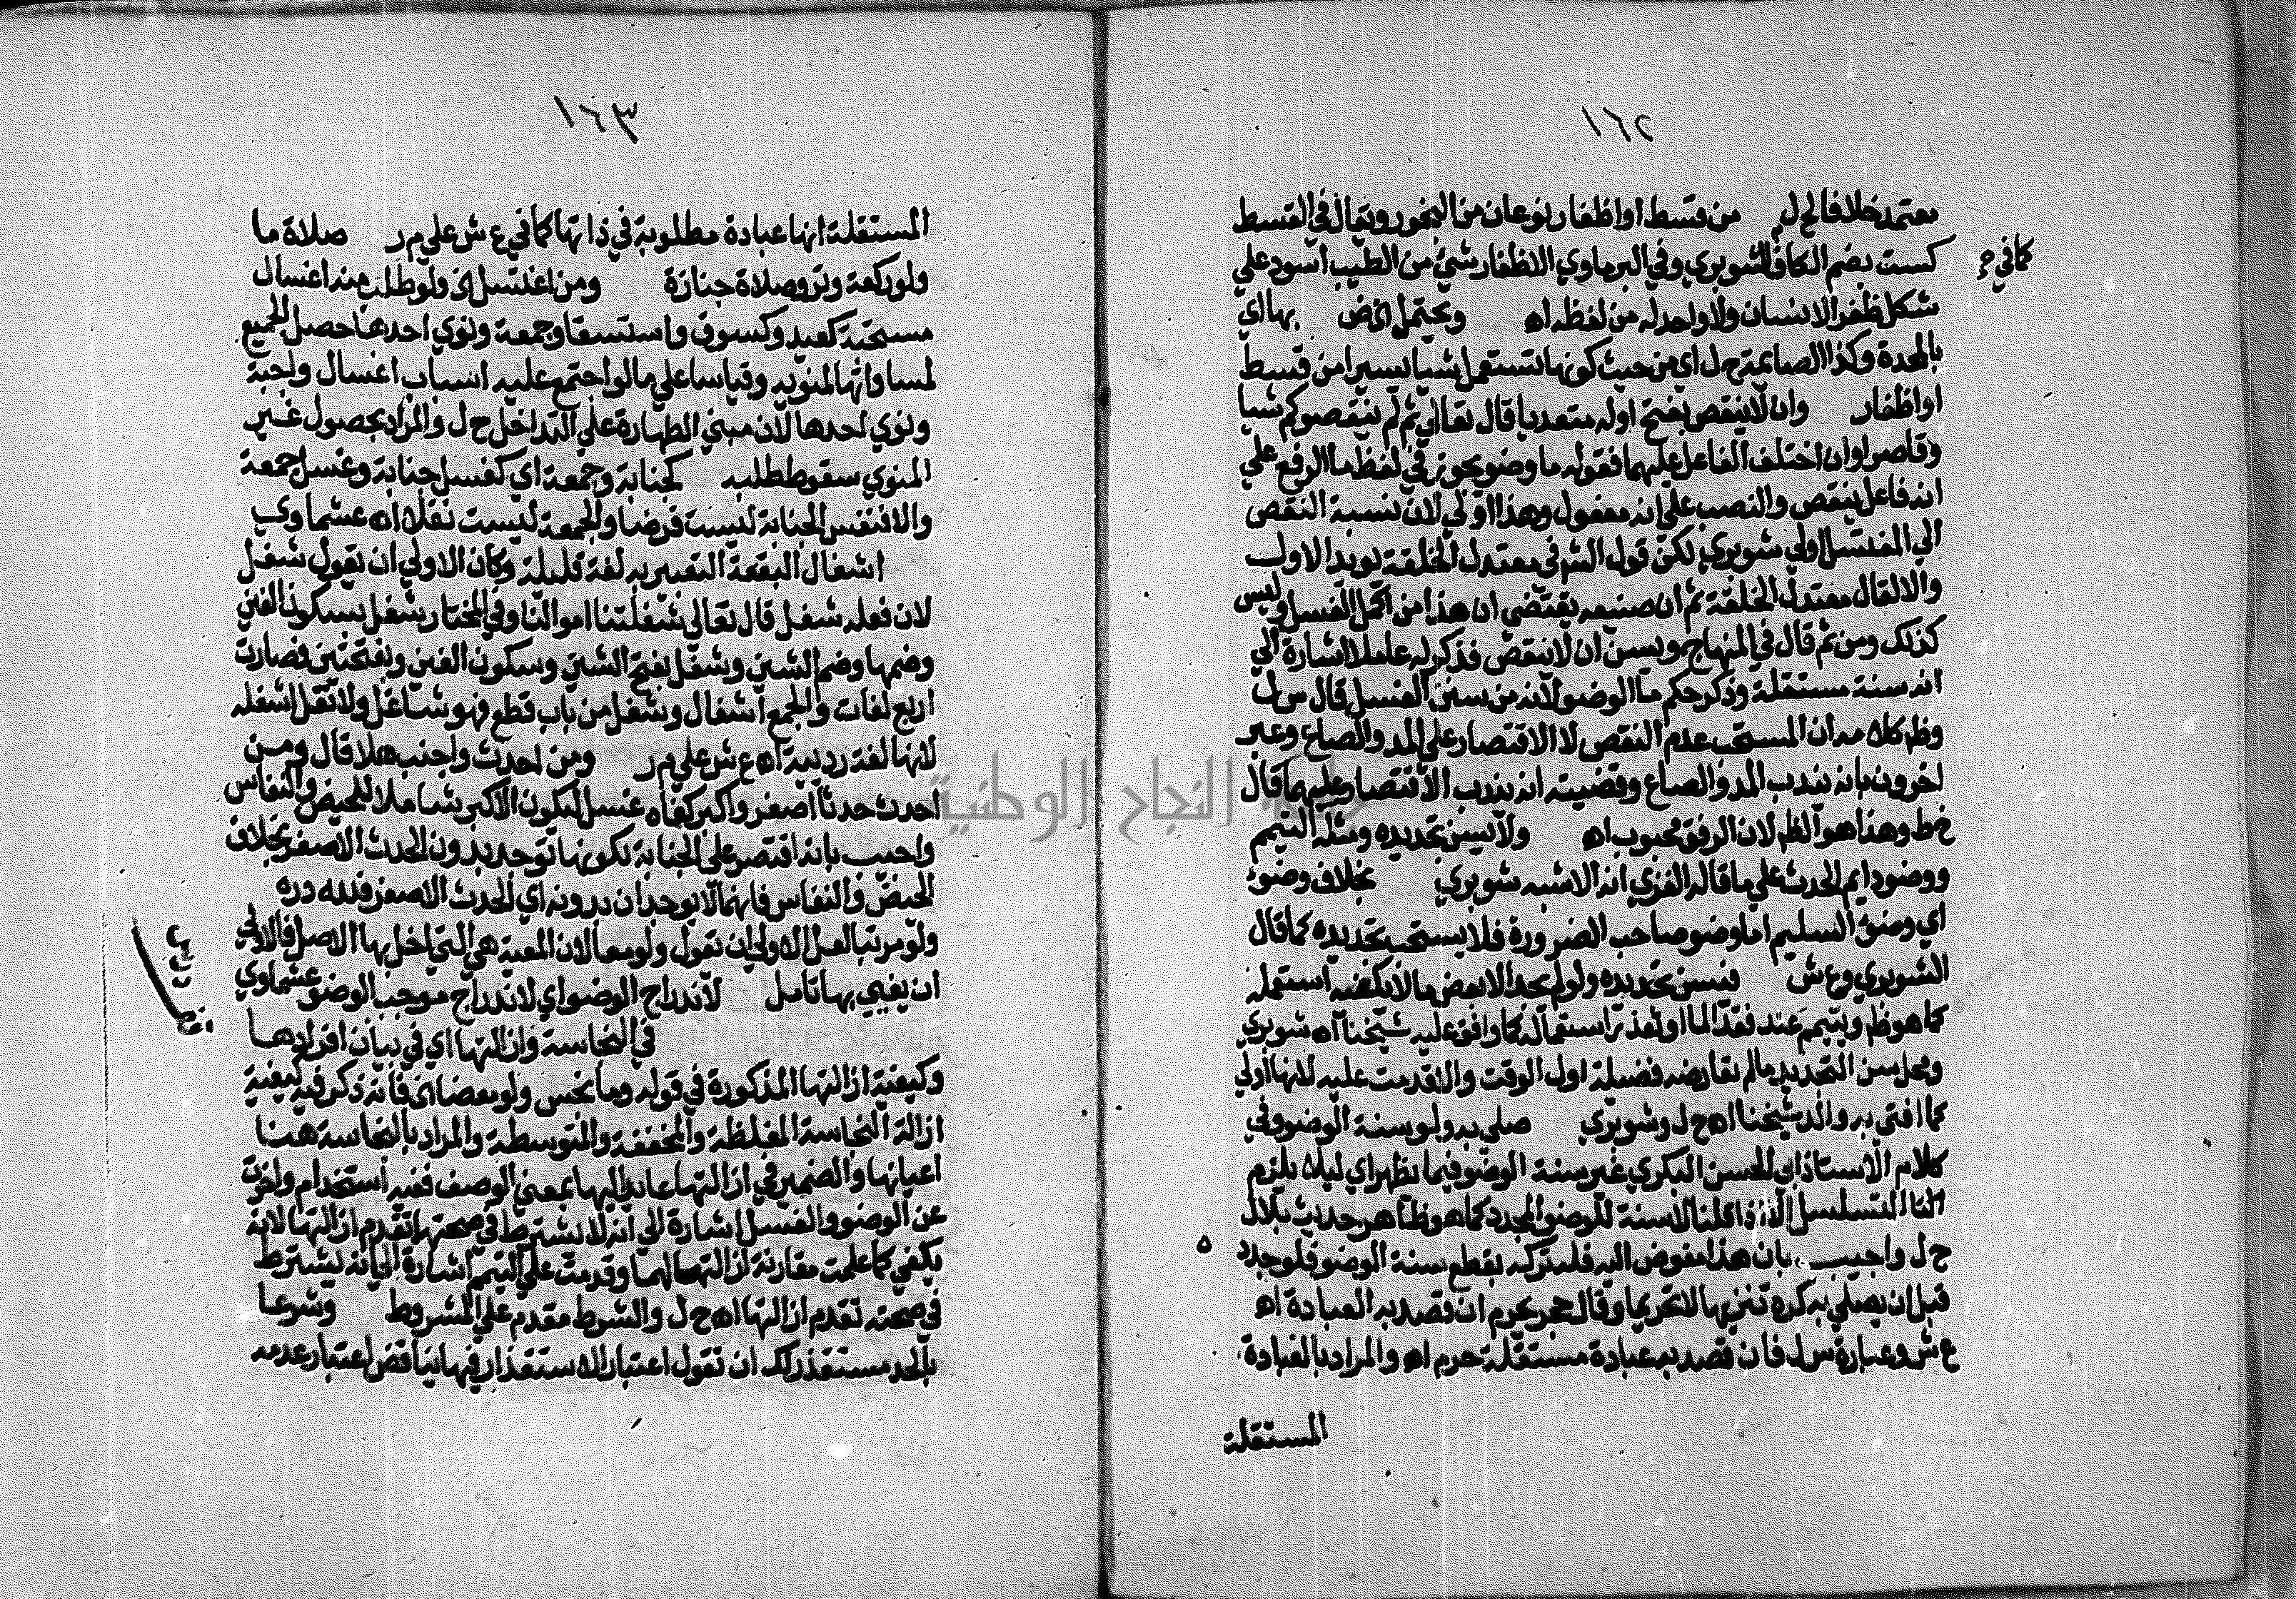 ١٦٢
معتمد خلافا لح ل من قسط او اظفار نوعان من البخور ويقال في القسط
كست بضم الكاف الشوبري وفي البرماوي الاظفار شئ من الطيب اسود علي
كما في
شكل ظفر الانسان ولا واحد له من لفظه اه ويحتمل الخ بها اي
بالمحدة وكذا الصائمة ح ل اي من حيث كونها تستعمل شيا يسيرا من قسط
او اظفار وان لا ينقص بفتح اوله متعديا قال تعالي ثم لم ينقصوكم شيا
وقاصرا وان اختلف الفاعل عليهما فقوله ما وضو يجوز في لفظ ما الرفع علي
انه فاعل ينقص والنصب علي انه مفعول وهذا اولي لان نسبة النقص
الي المغتسل اولي شوبري لكن قول الشم في معتدل الخلقة يويد الاول
والا لقال معتدل الخلقة ثم ان صنيعه يقتضي ان هذا من اكمل الغسل وليس
كذلك ومن ثم قال في المنهاج ويسن ان لا ينقص فذكر له عاملا اشارة الي
انه سنة مستقلة وذكر حكم ما الوضو لانه من سنن الغسل قال س ل
وظ كلامه ان المستحب عدم النقص لا الاقتصار علي المد والصاع وعبر
اخرون بانه يندب المد والصاع وقضيته انه يندب الاقتصار عليهما قال
خ ط وهذا هو الظ لان الرفق محبوب اه ولا يسن تجديده ومثله التيمم
ووضو دايم الحدث علي ما قاله الغزي انه الاشبه شوبري بخلاف وضؤ
اي وضؤ السليم اما وضو صاحب الضرورة فلا يستحب تجديده كما قال
الشوبري وع ش فيسن تجديده ولو لم يجد الا بعض ما لا يكفيه استعمله
كما هو ظ ويتيمم عند فقد الما او تعذر استعماله كما وافق عليه شيخنا اه شوبري
ومحل سن التجديد ما لم يعارضه فضيلة اول الوقت والا قدمت عليه لانها اولي
كما افتي به والد شيخنا اه ح ل وشوبري صلي به ولو سنة الوضو وفي
كلام الاستاذ ابي الحسن البكري غير سنة الوضو فيما يظهر اي ليلا يلزم
التسلسل الا اذا قلنا لا سنة للوضو المجدد كما هو ظاهر حديث بلال
ح ل واجيب بان هذا مفوض اليه فله تركه بقطع سنة الوضو فلو جدد
قبل ان يصلي به كره تنزيها لا تحريما وقال حجر يحرم ان قصد به العبادة اه
ع ش وعبارة س ل فان قصد به عبادة مستقلة حرم اه والمراد بالعبادة
المستقلة
١٦٣
المستقلة انها عبادة مطلوبة في ذاتها كما في ع ش علي م ر صلاة ما
ولو ركعة وتر وصلاة جنازة ومن اغتسل الخ ولو طلب منه اغسال
مستحبة كعيد وكسوف واستسقا وجمعة ونوي احدها حصل الجميع
لمساواتها لمنويه وقياسا علي ما لو اجتمع عليه اسباب اغسال واجبة
ونوي احدها لان مبني الطهارة علي التداخل ح ل والمراد بحصول غير
المنوي سقوط طلبه كجنابة وجمعة اي كغسل جنابة وغسل جمعة
والا فنفس الجنابة ليست فرضا والجمعة ليست نفلا اه عشماوي
اشغال البقعة التعبير به لغة قليلة وكان الاولي ان تقول شغل
لان فعله شغل قال تعالي شغلتنا اموالنا وفي المختار شغل بسكون الغين
وضمها وضم الشين وشغل بفتح الشين وسكون الغين وبفتحتين فصارت
اربع لغات والجمع اشغال وشغل من باب قطع فهو شاغل ولا تقل اشغله
لانها لغة رديية اه ع ش علي م ر ومن احدث واجنب هلا قال ومن
احدث حدثا اصغر واكبر كفاه غسل ليكون الاكبر شاملا للحيض والنفاس
واجيب بانه اقتصر علي الجنابة لكونها توجد بدون الحدث الاصغر بخلاف
الحيض والنفاس فانهما لا يوجدان بدونه اي الحدث الاصغر فلله دره
ولو مرتبا لعل الاولي ان تقول ولو معا لان المعية هي التي اخل بها الاصل فالاولي
ان يغيي بها تامل لاندراج الوضو اي لاندراج موجب الوضو عشماوي
في النجاسة وازالتها اي في بيان افرادها
وكيفية ازالتها المذكورة في قوله وما نجس ولو بعضا الخ فانه ذكر فيه كيفية
ازالة النجاسة المغلظة والمخففة والمتوسطة والمراد بالنجاسة هنا
اعيانها والضمير في ازالتها عائد اليها بمعني الوصف ففيه استخدام واخرت
عن الوضو والغسل اشارة الي انه لا يشترط في صحتها تقدم ازالتها لانه
يكفي كما علمت مقارنة ازالتها لهما وقدمت علي التيمم اشارة الي انه يشترط
في صحته تقدم ازالتها اه ح ل والشرط مقدم علي المشروط وشرعا
بالحد مستقذر لك ان تقول اعتبار الاستقذار فيها ينافض اعتبار عدمه